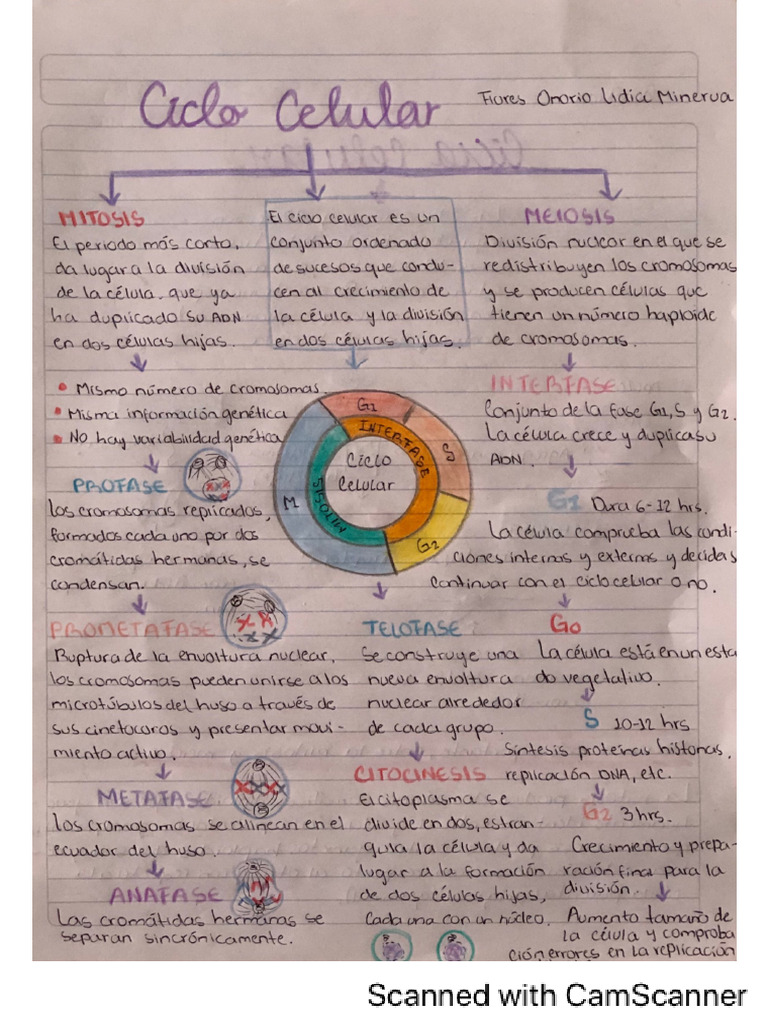 Ciclo Celular
Flores Onorio Lidia Minerva
MITOSIS
El periodo más corto,
da lugar a la división
de la célula, que ya
ha duplicado su ADN
en dos células hijas.
El ciclo celular es un
conjunto ordenado
de sucesos que condu-
cen al crecimiento de
la célula y la división
en dos células hijas.
MEIOSIS
División nuclear en el que se
redistribuyen los cromosomas
y se producen células que
tienen un número haploide
de cromosomas.
• Mismo número de cromosomas.
• Misma información genética
• No hay variabilidad genética
G1
S
G2
M
INTERFASE
MITOSIS
Ciclo
Celular
PROFASE
Los cromosomas replicados,
formados cada uno por dos
cromátidas hermanas, se
condensan.
PROMETAFASE
Ruptura de la envoltura nuclear,
los cromosomas pueden unirse a los
microtúbulos del huso a través de
sus cinetocoros y presentar movi-
miento activo.
METAFASE
Los cromosomas se alinean en el
ecuador del huso.
ANAFASE
Las cromátidas hermanas se
separan sincrónicamente.
TELOFASE
Se construye una
nueva envoltura
nuclear alrededor
de cada grupo.
CITOCINESIS
El citoplasma se
divide en dos, estran-
gula la célula y da
lugar a la formación
de dos células hijas,
cada una con un núcleo.
INTERFASE
Conjunto de la fase G1, S y G2.
La célula crece y duplica su
ADN.
G1 Dura 6-12 hrs.
La célula comprueba las condi-
ciones internas y externas y decide si
continuar con el ciclo celular o no.
G0
La célula está en un esta
do vegetativo.
S 10-12 hrs
Síntesis proteínas histonas,
replicación DNA, etc.
G2 3 hrs.
Crecimiento y prepa-
ración final para la
división.
Aumento tamaño de
la célula y comproba
ción errores en la replicación
Scanned with CamScanner